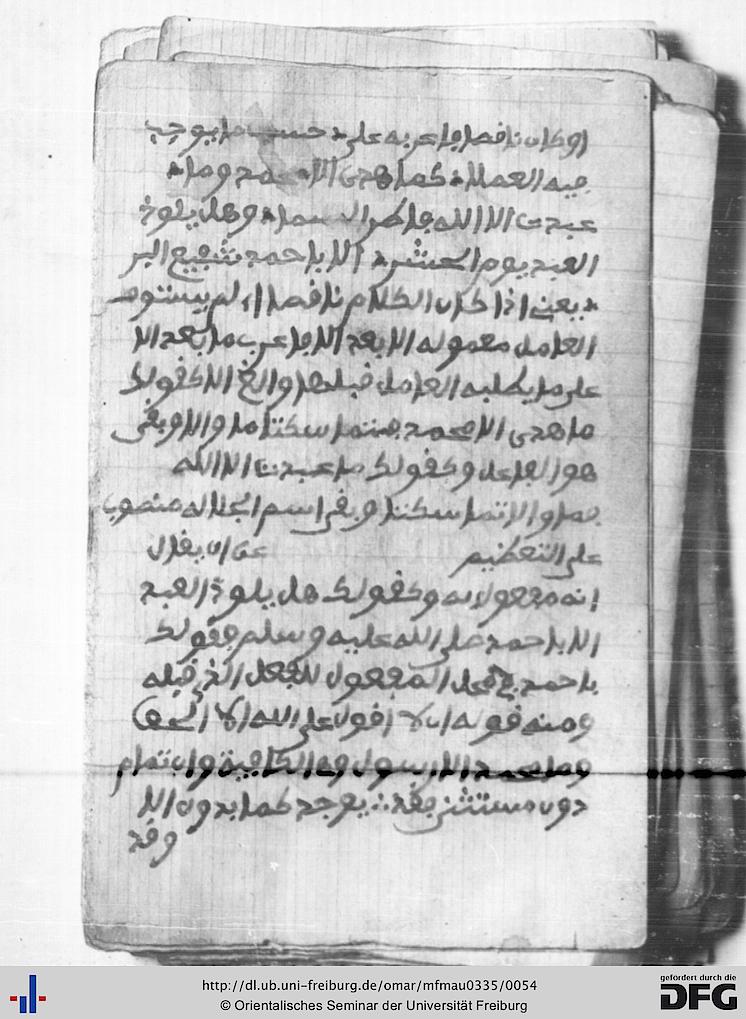 او كان ناقصا فاعربه على * حسب ما يوجب
فيه العملا * كما هدى الا محمد وما *
عبدت الا الله فاطر السما * وهل يلوذ
العبد يوم الحشر * الا باحمد شفيع البر
* يعني اذا كان الكلام ناقصا اي لم يستوف
العامل معموله الا بعد الا فاعرب ما بعد الا
على ما يطلبه العامل قبلها والغ الا كقولك
ما هدى الا محمد فتتما سكتا ما والا وبقى
هو الفاعل وكقولك ما عبدت الا الله
فما والا تتما سكتا وبقي اسم الجلاله منصوب
على التعظيم عن ان يقال
انه مفعولا به وكقولك هل يلوذ العبد
الا باحمد صلى الله عليه وسلم فقولك
باحمد في محل المفعول للفعل الذي قبله
ومنه قوله ان لا اقول على الله الا الحق
وما محمد الا رسول وفي الكافية وان تمام
دون مستثنى فقد * يوجد كما بدون الا
وقد
http://dl.ub.uni-freiburg.de/omar/mfmau0335/0054
© Orientalisches Seminar der Universität Freiburg
gefördert durch die
DFG